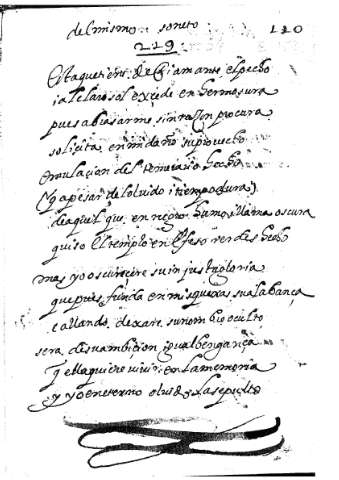 del mismo soneto
120
229
Esta que tiene de diamante el pecho
i al claro sol exçede en hermosura
pues abrasarme sin razon procura
solicita en mi daño su provecho
emulacion del temerario hecho
(q̃ a pesar del olvido i tiempo dura)
de aquel que en negro humo i llama oscura
quiso el templo en Efeso ver deshecho
mas yo oscurecere su injusta gloria
que pues funda en mis quexas su alabança
callando dexare su nombre oculto
sera de su ambicion igual bengança
q̃ ella quiere vivir en la memoria
y yo en eterno olvido la sepulto